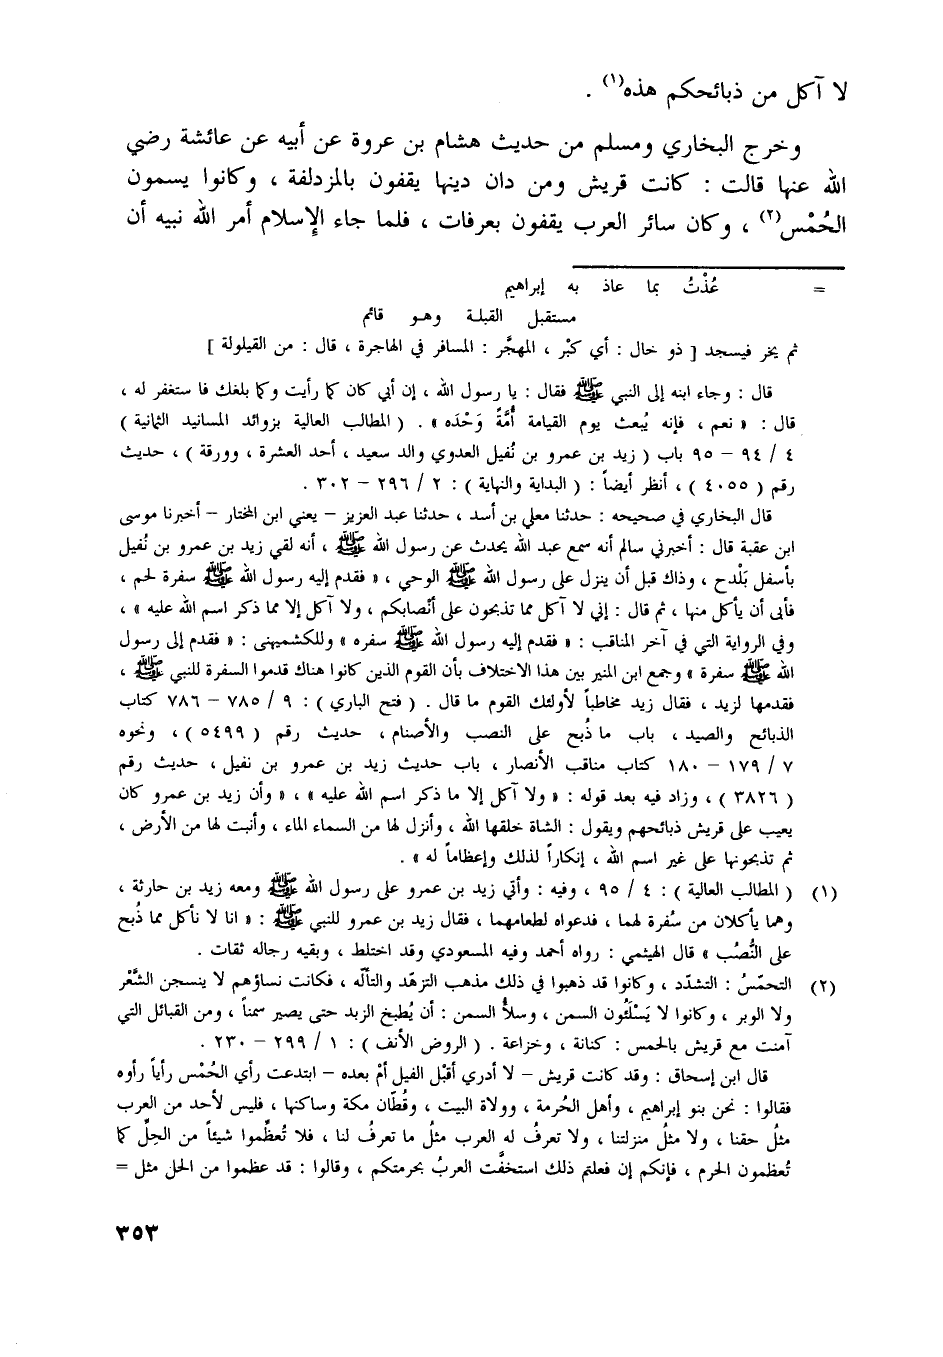 لا آكل من ذبائحكم هذه(١) .
وخرج البخاري ومسلم من حديث هشام بن عروة عن أبيه عن عائشة رضي
الله عنها قالت : كانت قريش ومن دان دينها يقفون بالمزدلفة ، وكانوا يسمون
الحُمْس(٢) ، وكان سائر العرب يقفون بعرفات ، فلما جاء الإسلام أمر الله نبيه أن
= عُذْتُ بما عاذ به إبراهيم
مستقبل القبلة وهو قائم
ثم يخر فيسجد [ ذو خال : أي كبْر ، المهجَّر : المسافر في الهاجرة ، قال : من القيلولة ]
قال : وجاء ابنه إلى النبي ﷺ فقال : يا رسول الله ، إن أبي كان كما رأيت وكما بلغك فا ستغفر له ،
قال : « نعم ، فإنه يُبعث يوم القيامة أُمَّةً وَحْدَه » . ( المطالب العالية بزوائد المسانيد الثمانية )
٤ / ٩٤ – ٩٥ باب ( زيد بن عمرو بن نُفيل العدوي والد سعيد ، أحد العشرة ، وورقة ) ، حديث
رقم ( ٤٠٥٥ ) ، أنظر أيضاً : ( البداية والنهاية ) : ٢ / ٢٩٦ – ٣٠٢ .
قال البخاري في صحيحه : حدثنا معلي بن أسد ، حدثنا عبد العزيز – يعني ابن المختار – أخبرنا موسى
ابن عقبة قال : أخبرني سالم أنه سمع عبد الله يحدث عن رسول الله ﷺ ، أنه لقي زيد بن عمرو بن نُفيل
بأسفل بَلْدح ، وذاك قبل أن ينزل على رسول الله ﷺ الوحي ، « فقدم إليه رسول الله ﷺ سفرة لحم ،
فأبى أن يأكل منها ، ثم قال : إني لا آكل مما تذبحون على أنْصابكم ، ولا آكل إلا مما ذكر اسم الله عليه » ،
وفي الرواية التي في آخر المناقب : « فقدم إليه رسول الله ﷺ سفره » وللكشميهنى : « فقدم إلى رسول
الله ﷺ سفرة » وجمع ابن المنير بين هذا الاختلاف بأن القوم الذين كانوا هناك قدموا السفرة للنبي ﷺ ،
فقدمها لزيد ، فقال زيد مخاطباً لأولئك القوم ما قال . ( فتح الباري ) : ٩ / ٧٨٥ – ٧٨٦ كتاب
الذبائح والصيد ، باب ما ذُبح على النصب والأصنام ، حديث رقم ( ٥٤٩٩ ) ، ونحوه
٧ / ١٧٩ – ١٨٠ كتاب مناقب الأنصار ، باب حديث زيد بن عمرو بن نفيل ، حديث رقم
( ٣٨٢٦ ) ، وزاد فيه بعد قوله : « ولا آكل إلا ما ذكر اسم الله عليه » ، « وأن زيد بن عمرو كان
يعيب على قريش ذبائحهم ويقول : الشاة خلقها الله ، وأنزل لها من السماء الماء ، وأنبت لها من الأرض ،
ثم تذبحونها على غير اسم الله ، إنكاراً لذلك وإعظاماً له » .
(١) ( المطالب العالية ) : ٤ / ٩٥ ، وفيه : وأتي زيد بن عمرو على رسول الله ﷺ ومعه زيد بن حارثة ،
وهما يأكلان من سُفرة لهما ، فدعواه لطعامهما ، فقال زيد بن عمرو للنبي ﷺ : « انا لا نأكل مما ذُبح
على النُّصُب » قال الهيثمي : رواه أحمد وفيه المسعودي وقد اختلط ، وبقيه رجاله ثقات .
(٢) التحمّسُ : التشدّد ، وكانوا قد ذهبوا في ذلك مذهب التزهّد والتألّه ، فكانت نساؤهم لا ينسجن الشَّعْر
ولا الوبر ، وكانوا لا يَسْلَئُون السمن ، وسلأُ السمن : أن يُطبخ الزبد حتى يصير سمناً ، ومن القبائل التي
آمنت مع قريش بالحمس : كنانة ، وخزاعة . ( الروض الأنف ) : ١ / ٢٩٩ – ٢٣٠ .
قال ابن إسحاق : وقد كانت قريش – لا أدري أقبْل الفيل أمْ بعده – ابتدعت رأي الحُمْس رأياً رأوه
فقالوا : نحن بنو إبراهيم ، وأهل الحُرمة ، وولاة البيت ، وقُطّان مكة وساكنها ، فليس لأحد من العرب
مثلُ حقنا ، ولا مثلُ منزلتنا ، ولا تعرفُ له العرب مثلُ ما تعرفُ لنا ، فلا تُعظِّموا شيئاً من الحِلِّ كما
تُعظمون الحرم ، فإنكم إن فعلتم ذلك استخفَّت العربُ بحرمتكم ، وقالوا : قد عظموا من الحل مثل =
٣٥٣